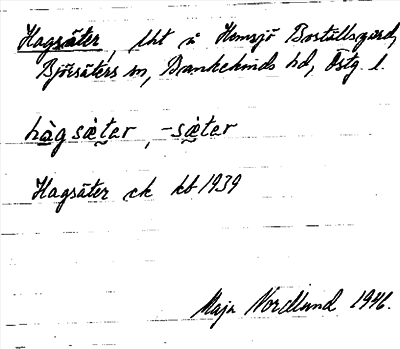 Hagsäter, lht å Hemsjö Boställsgård,
Björsäters sn, Bankekinds hd, Östg. l.
hàgsètər, -sètər
Hagsäter ek kb 1939
Maja Nordlund 1946.